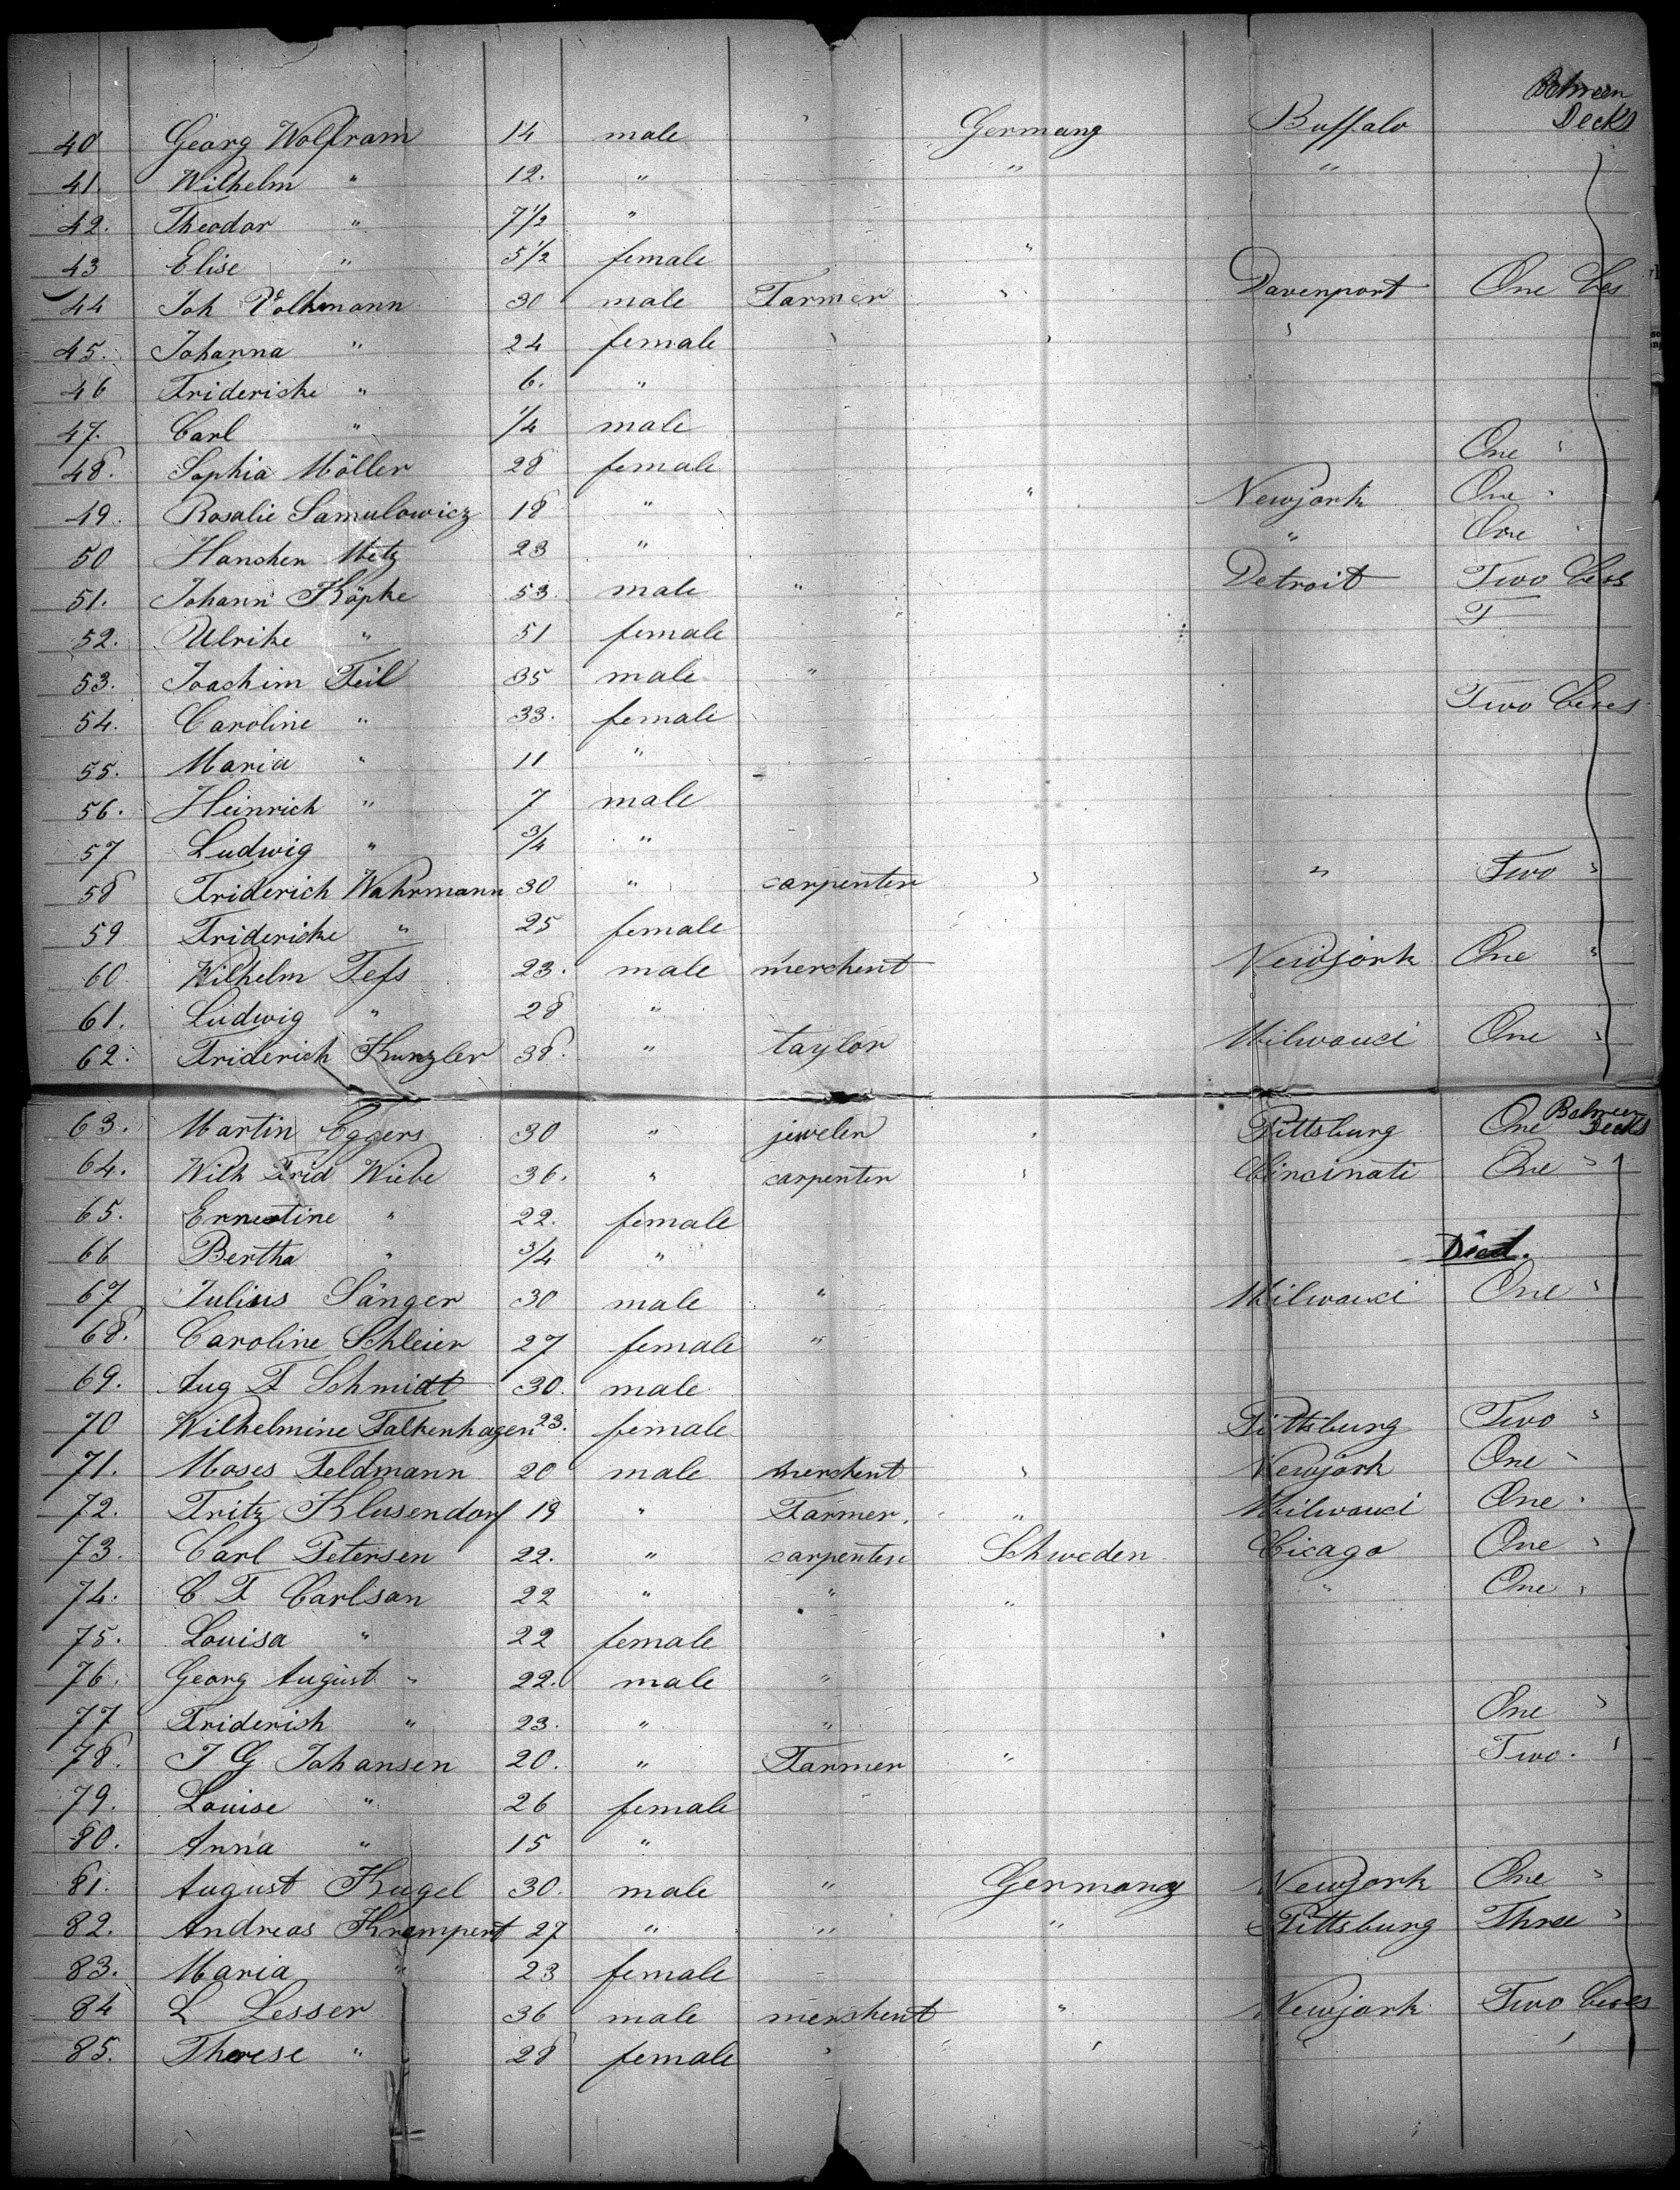 Between
Decks
40 Georg Wolfram 14 male Germany Buffalo
41. Wilhelm " 12. " " "
42. Theodor " 7 1/2 "
43 Elise " 5 1/2 female "
44 Joh Volkmann 30 male Farmer " Davenport One
45. Johanna " 24 female " " "
46 Fridericke " 6. "
47. Carl " 1/4 male
48. Sophia Möller 28 female One "
49. Rosalie Samulowicz 18 " " Newjork One "
50 Hanchen Metz 23 " " One "
51. Johann Köpke 53 male " Detroit Two
52. Ulrike " 51 female " T
53. Joachim Feil 35 male "
54. Caroline " 33. female Two
55. Maria " 11 "
56. Heinrich " 7 male
57 Ludwig " 3/4 "
58 Friderich Wahrmann 30 " carpenter " " Two "
59 Fridericke " 25 female
60 Wilhelm Tefs 23. male merchent Newjork One "
61. Ludwig " 28 "
62. Friderich Kunzler 38. " taylor Milwauci One "
Between
Decks
63. Martin Eggers 30 " jeweler " Pittsburg One
64. Wilh Frid Wiebe 36. " carpenter " Cincinati One "
65. Ernestine " 22. female
66 Bertha " 3/4 " Died.
67 Julius Sänger 30 male " Milwauci One "
68. Caroline Schleier 27 female "
69. Aug F Schmidt 30. male
70 Wilhelmine Falkenhagen 23. female Pittsburg Two "
71. Moses Feldmann 20 male merchent " Newjork One "
72. Fritz Klusendorf 19 " Farmer. " Milwauci One "
73. Carl Petersen 22. " carpenter Schweden Cicago One "
74. C F Carlsan 22 " " " " One "
75. Louisa " 22 female
76. Georg August " 22. male "
77 Friderich " 23. " " One "
78. J G Johansen 20. " Farmer " Two. "
79. Louise " 26 female
80. Anna " 15 "
81. August Kugel 30. male " Germany Newjork One "
82. Andreas Krampert 27 " " " Pittsburg Three "
83. Maria " 23 female
84 L Lesser 36 male merchent " Newjork Two
85. Therese " 28 female " " "